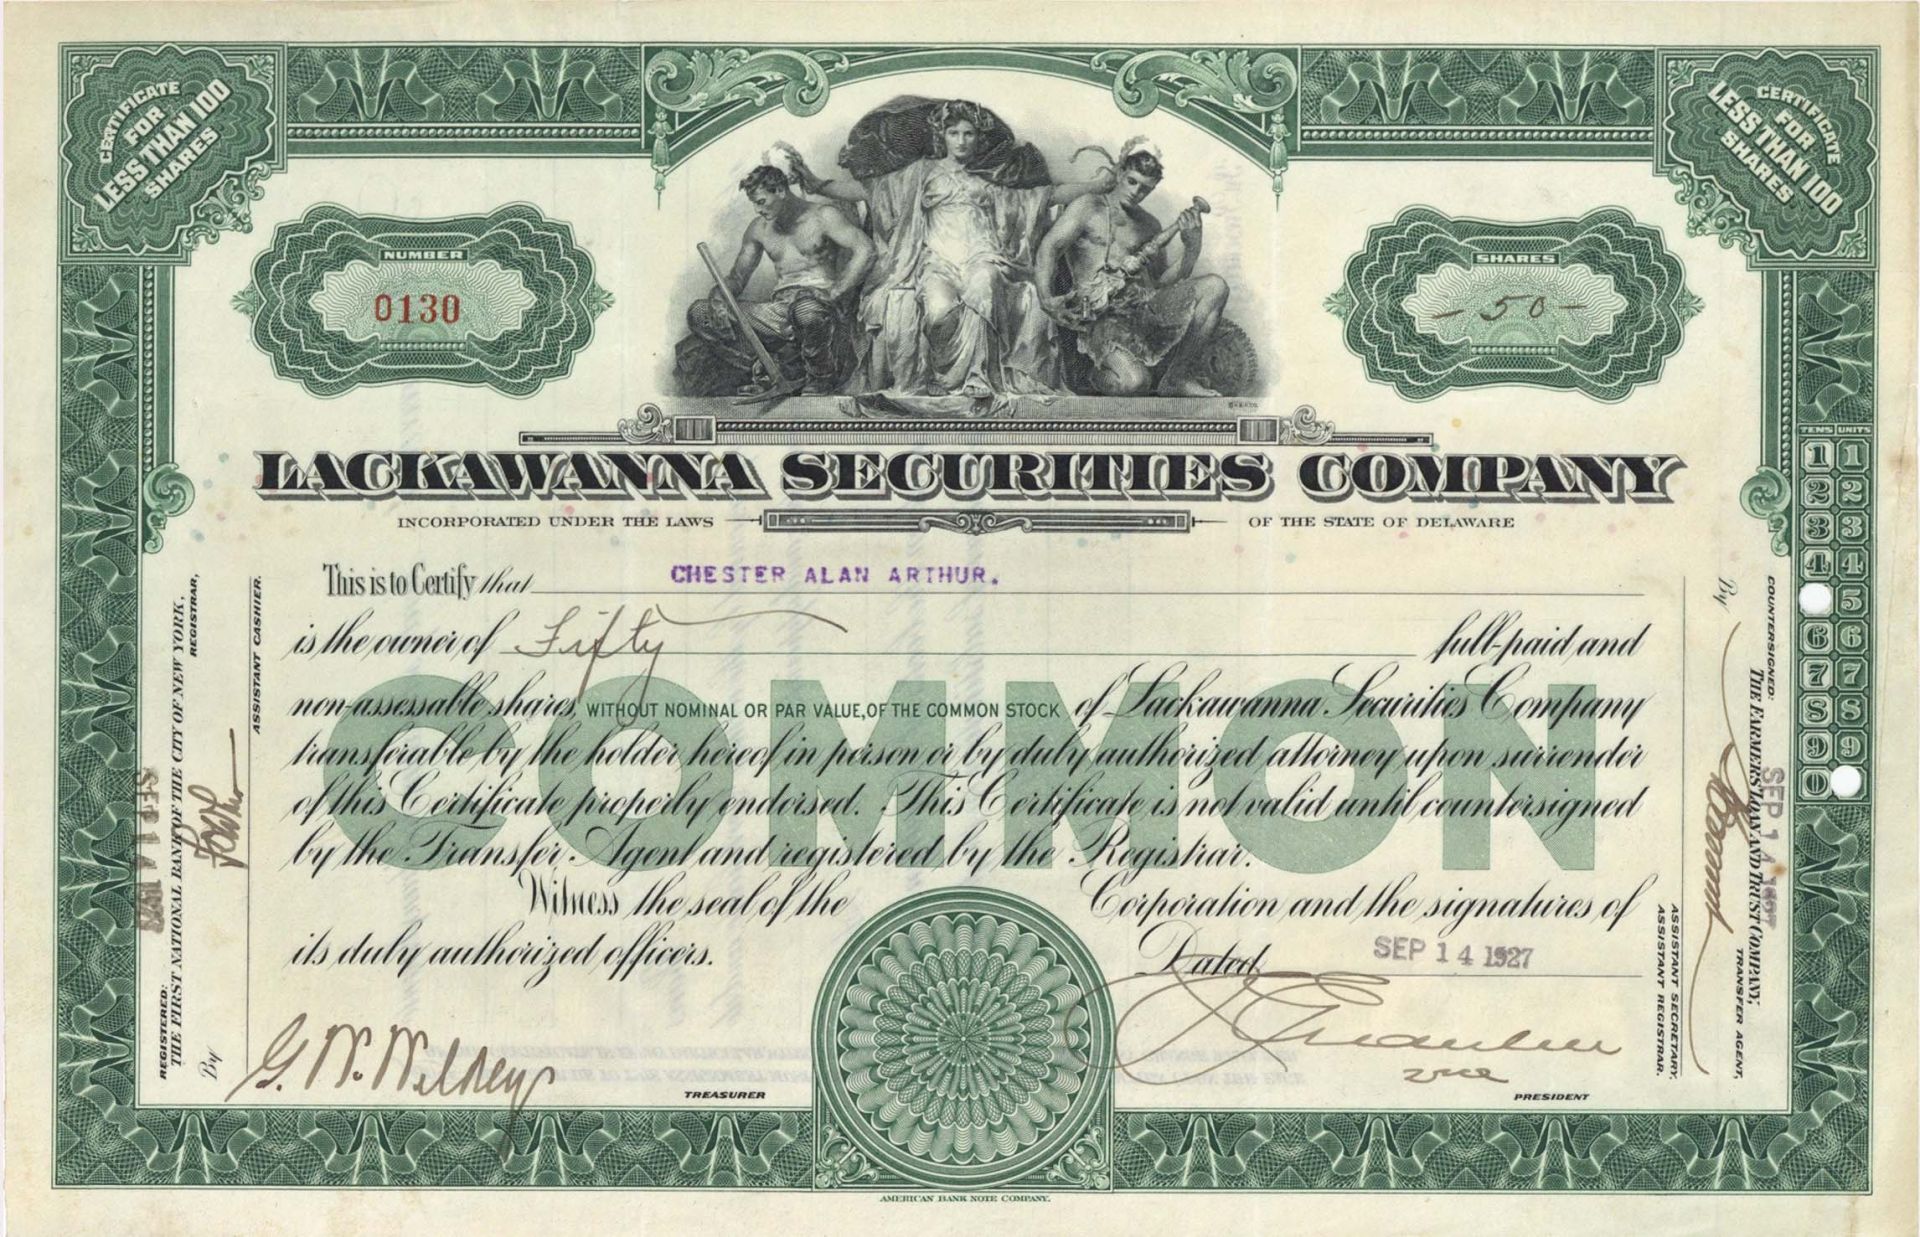 CERTIFICATE
FOR
LESS THAN 100
SHARES
CERTIFICATE
FOR
LESS THAN 100
SHARES
NUMBER
0130
SHARES
- 50 -
LACKAWANNA SECURITIES COMPANY
INCORPORATED UNDER THE LAWS OF THE STATE OF DELAWARE
This is to Certify that CHESTER ALAN ARTHUR.
is the owner of Fifty full-paid and
non-assessable shares, WITHOUT NOMINAL OR PAR VALUE, OF THE COMMON STOCK of Lackawanna Securities Company
transferable by the holder hereof in person or by duly authorized attorney upon surrender
of this Certificate properly endorsed. This Certificate is not valid until countersigned
by the Transfer Agent and registered by the Registrar.
COMMON
Witness the seal of the Corporation and the signatures of
its duly authorized officers.
Dated SEP 14 1927
G. W. Wilkey
TREASURER
vice
PRESIDENT
AMERICAN BANK NOTE COMPANY.
REGISTERED:
THE FIRST NATIONAL BANK OF THE CITY OF NEW YORK,
REGISTRAR,
By
ASSISTANT CASHIER.
SEP 14 1927
COUNTERSIGNED:
THE FARMERS' LOAN AND TRUST COMPANY,
TRANSFER AGENT,
By
SEP 14 1927
ASSISTANT SECRETARY.
ASSISTANT REGISTRAR.
TENS UNITS
1 1
2 2
3 3
4 4
5
6 6
7 7
8 8
9 9
0